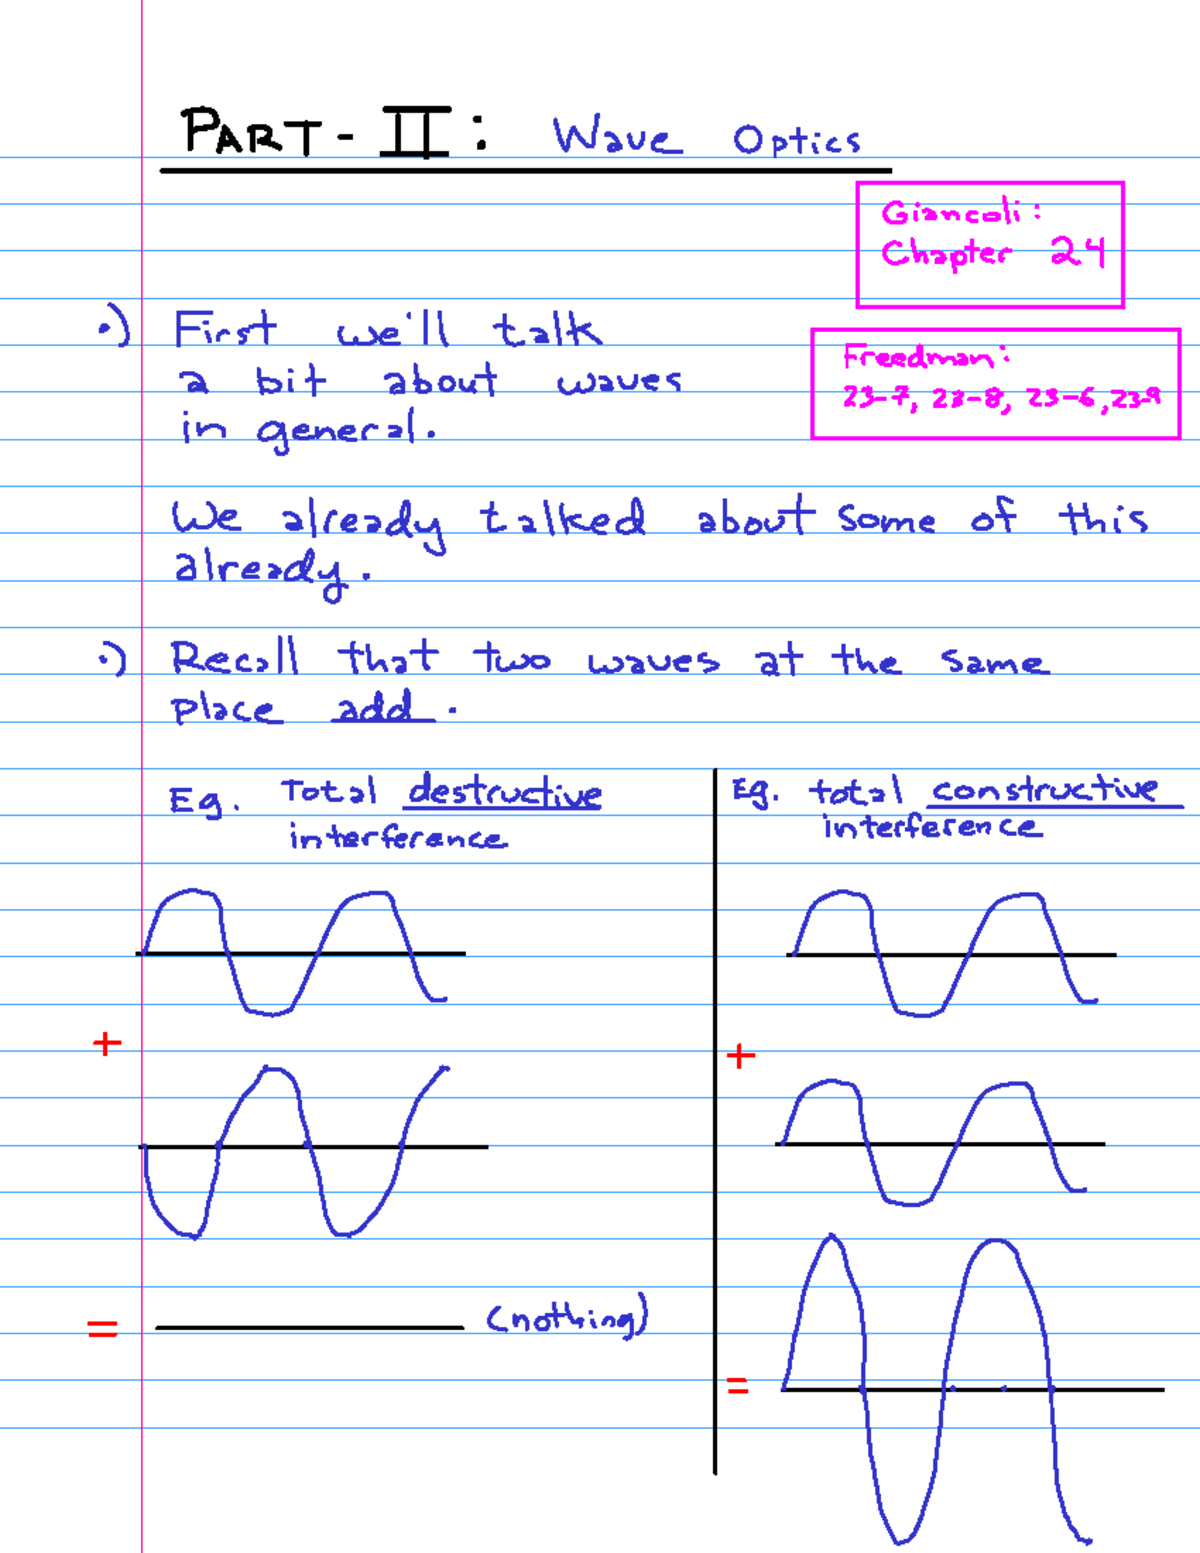 PART-II: Wave Optics
Giancoli:
Chapter 24
Freedman:
23-7, 23-8, 23-6, 23-9
•) First we'll talk
a bit about waves
in general.
We already talked about some of this
already.
•) Recall that two waves at the same
place add.
Eg. Total destructive
interference
Eg. total constructive
interference
+
+
= (nothing)
=